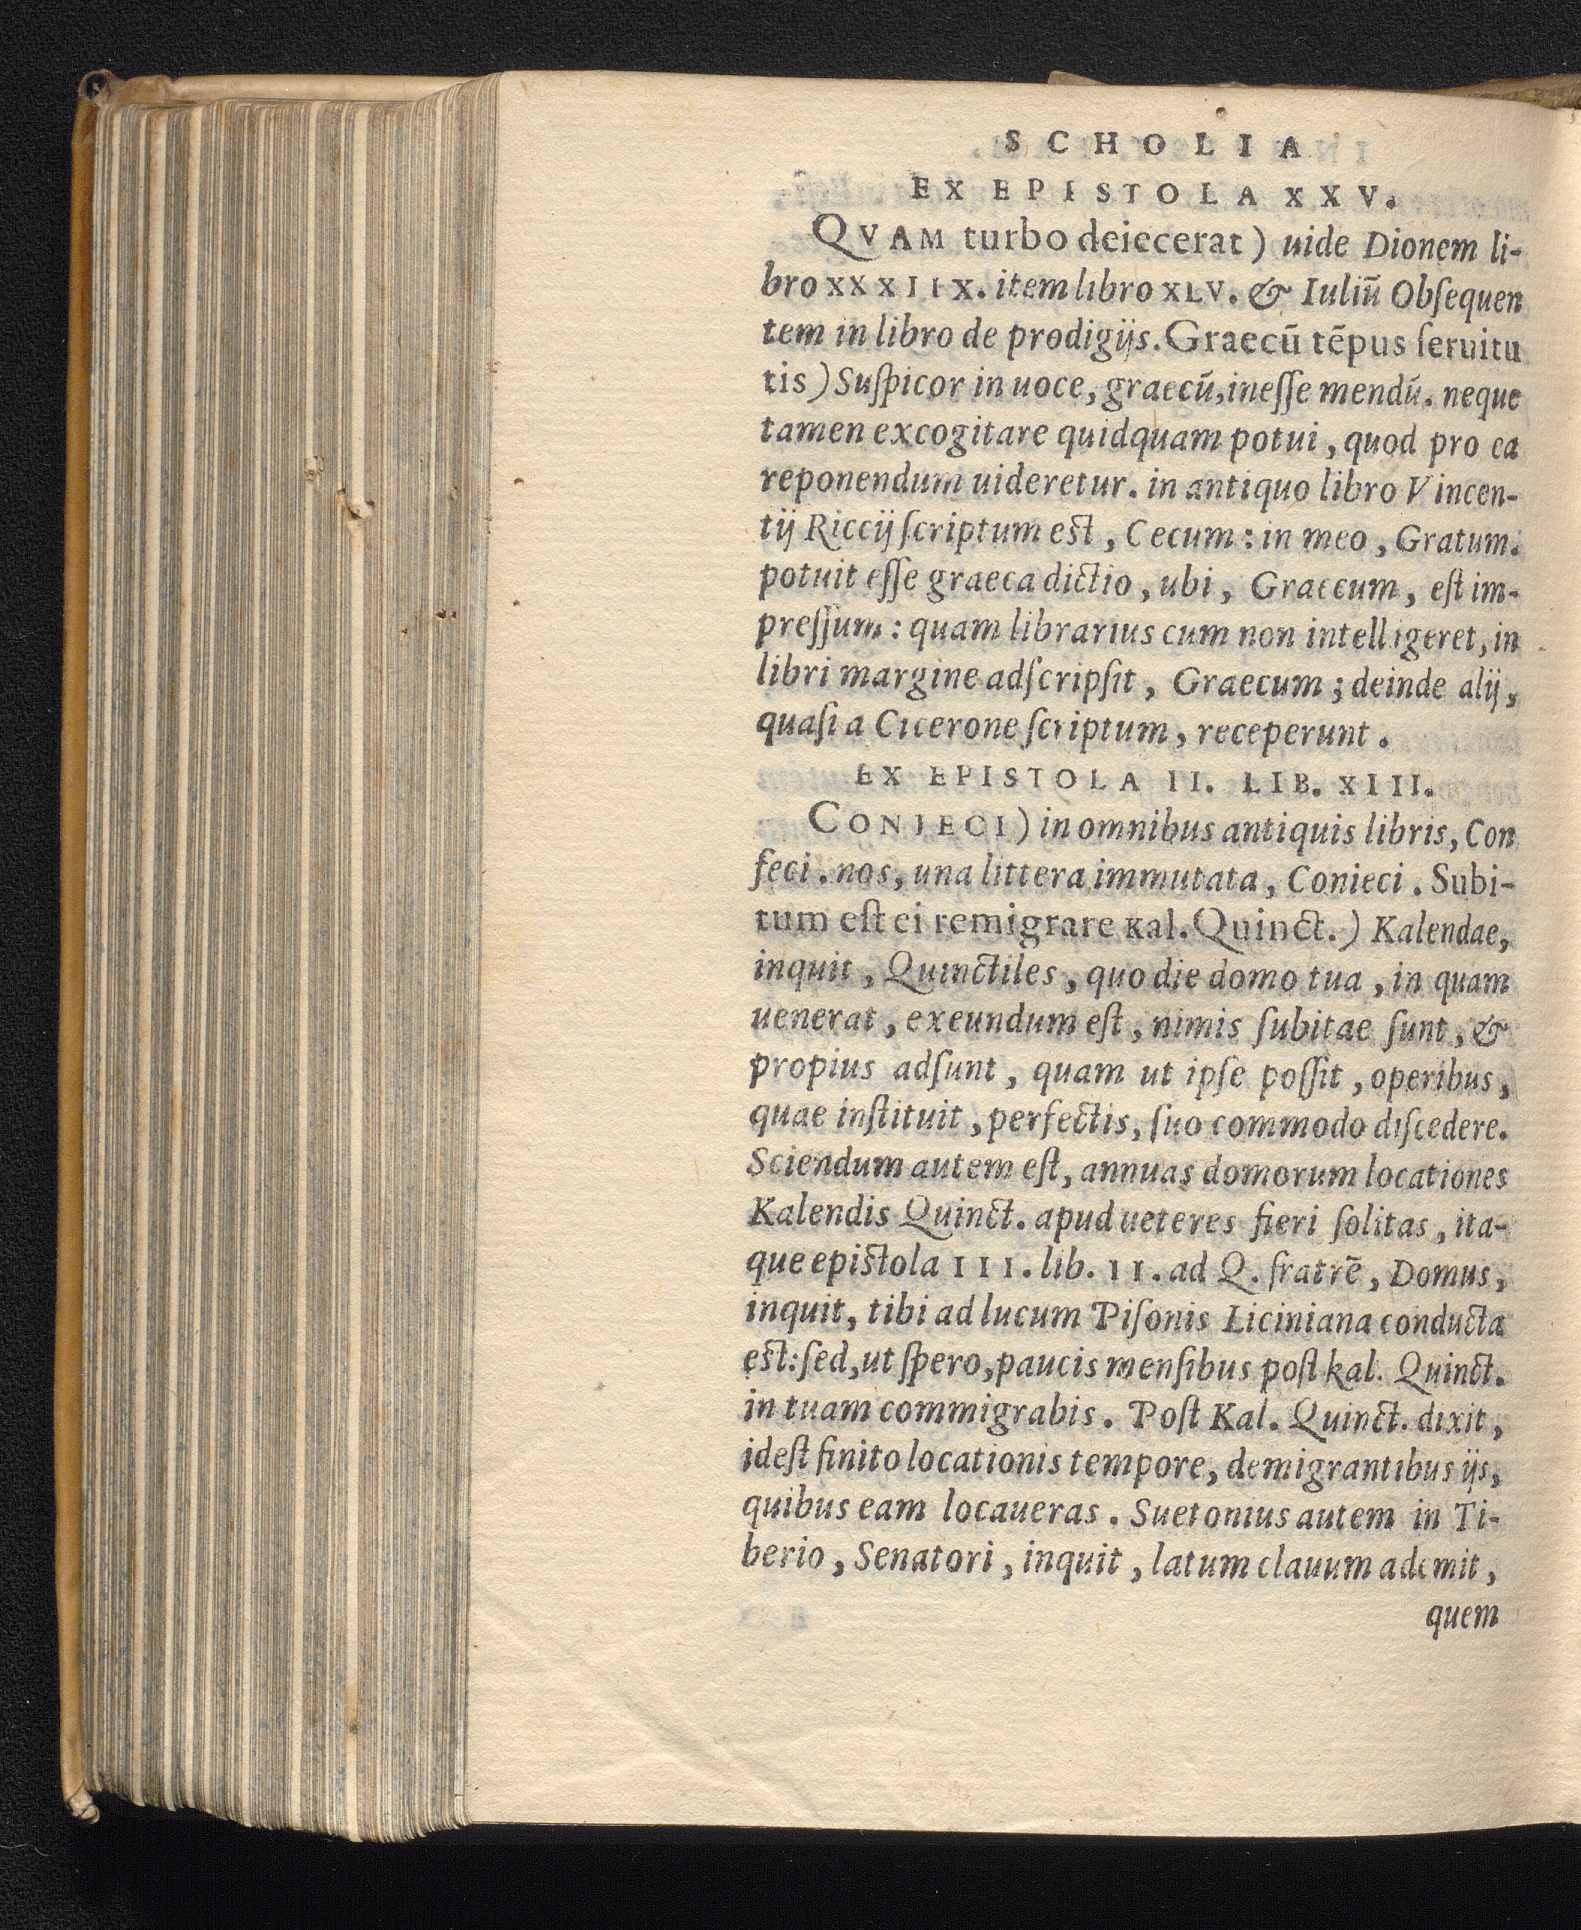 SCHOLIA
EX EPISTOLA XXV.
QVAM turbo deiecerat) uide Dionem li-
bro XXXIIX. item libro XLV. & Iuliū Obſequen
tem in libro de prodigijs. Graecū tēpus ſeruitu
tis) Suſpicor in uoce, graecū, ineſſe mendū. neque
tamen excogitare quidquam potui, quod pro ea
reponendum uideretur. in antiquo libro Vincen-
tij Riccij ſcriptum est, Cecum: in meo, Gratum.
potuit eſſe graeca dictio, ubi, Graecum, eſt im-
preſſum: quam librarius cum non intelligeret, in
libri margine adſcripſit, Graecum; deinde alij,
quaſi a Cicerone ſcriptum, receperunt.
EX EPISTOLA II. LIB. XIII.
CONIECI) in omnibus antiquis libris, Con
feci. nos, una littera immutata, Conieci. Subi-
tum eſt ei remigrare Kal. Quinct.) Kalendae,
inquit, Quinctiles, quo die domo tua, in quam
uenerat, exeundum eſt, nimis ſubitae ſunt, &
propius adſunt, quam ut ipſe poſſit, operibus,
quae inſtituit, perfectis, ſuo commodo diſcedere.
Sciendum autem eſt, annuas domorum locationes
Kalendis Quinct. apud ueteres fieri ſolitas, ita-
que epistola III. lib. II. ad Q. fratrē, Domus,
inquit, tibi ad lucum Piſonis Liciniana conducta
est: ſed, ut ſpero, paucis menſibus poſt kal. Quinct.
in tuam commigrabis. Poſt Kal. Quinct. dixit,
ideſt finito locationis tempore, demigrantibus ijs,
quibus eam locaueras. Suetonius autem in Ti-
berio, Senatori, inquit, latum clauum ademit,
quem